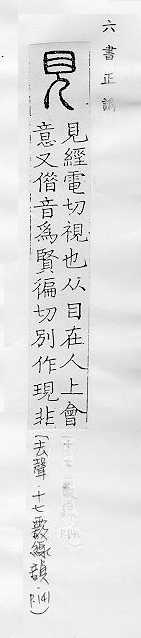 六書正譌
見
見經電切視也从目在人上會
意又偕音為賢徧切別作現非
(去聲.十七霰線韻.P.141)